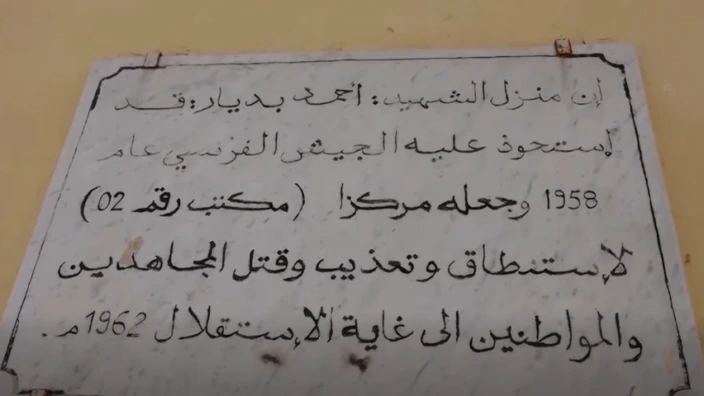 إن منزل الشهيد: احمد بديار: قد
إستحوذ عليه الجيش الفرنسي عام
1958 وجعله مركزا (مكتب رقم 02)
لإستنطاق وتعذيب وقتل المجاهدين
والمواطنين الى غاية الإستقلال 1962م.